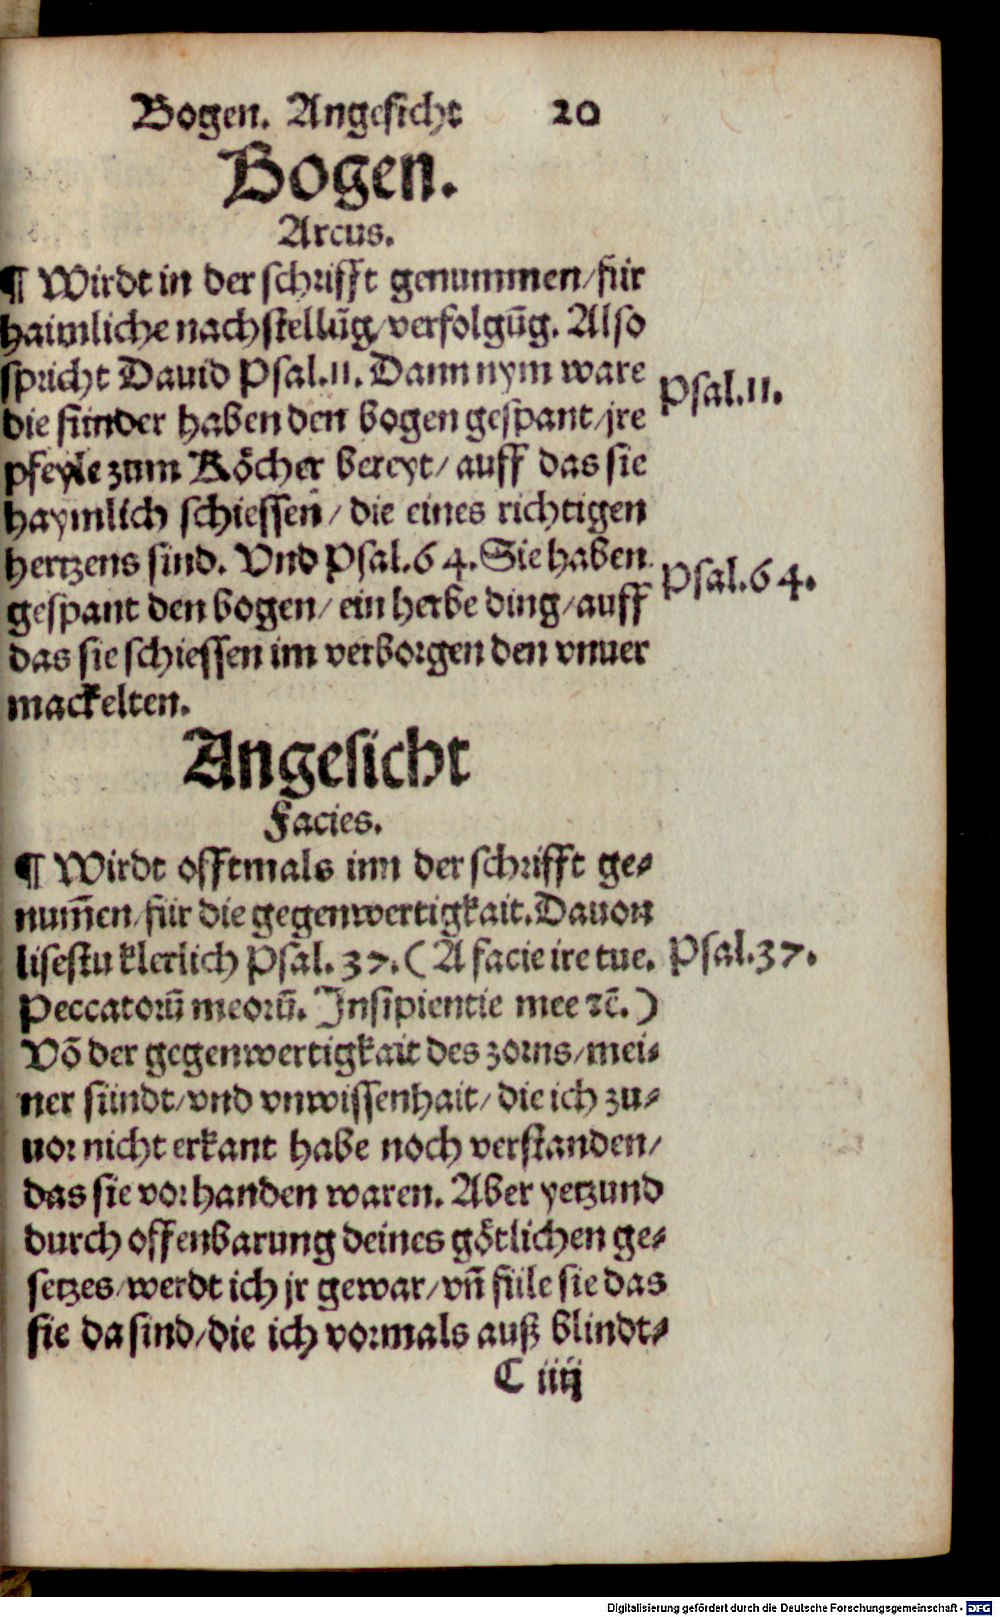 Bogen. Angesicht 20
Bogen.
Arcus.
¶ Wirdt in der schrifft genummen/für
haimliche nachstellūg/verfolgūg. Also
spricht Dauid Psal.11. Dann nym ware
die sünder haben den bogen gespant/jre
pfeyle zum Köcher bereyt/ auff das sie
haymlich schiessen/ die eines richtigen
hertzens sind. Vnd Psal.64. Sie haben
gespant den bogen/ ein herbe ding/auff
das sie schiessen im verborgen den vnuer
mackelten.
Psal.11.
Psal.64.
Angesicht
Facies.
¶ Wirdt offtmals inn der schrifft ge-
num̄en/für die gegenwertigkait. Dauon
lisestu klerlich Psal. 37. ( A facie ire tue.
Peccatorū meorū. Insipientie mee ꝛc̄. )
Vō der gegenwertigkait des zorns/mei-
ner sündt/vnd vnwissenhait/ die ich zu-
uor nicht erkant habe noch verstanden/
das sie vorhanden waren. Aber yetzund
durch offenbarung deines götlichen ge-
setzes/werdt ich jr gewar/vn̄ füle sie das
sie da sind/die ich vormals auß blindt-
Psal.37.
C iiij
Digitalisierung gefördert durch die Deutsche Forschungsgemeinschaft - DFG